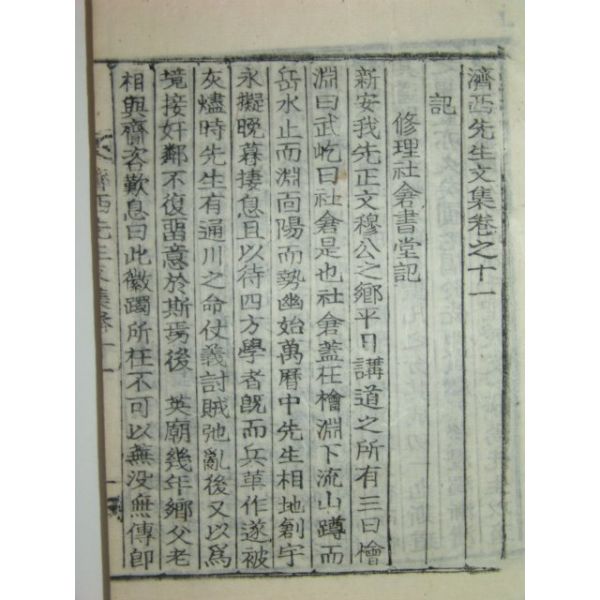 濟西先生文集卷之十一
記
修理社倉書堂記
新安我先正文穆公之鄉平日講道之所有三曰檜
淵曰武屹曰社倉是也社倉蓋在檜淵下流山蹲而
岳水止而淵向陽而勢幽始萬曆中先生相地創宇
永擬晚暮捿息且以待四方學者旣而兵革作遂被
灰燼時先生有通川之命仗義討賊弛亂後又以爲
境接奸鄰不復留意於斯焉後 英廟幾年鄉父老
相與齎咨歎息曰此徽躅所在不可以無没無傳卽
濟西先生文集卷十一
一